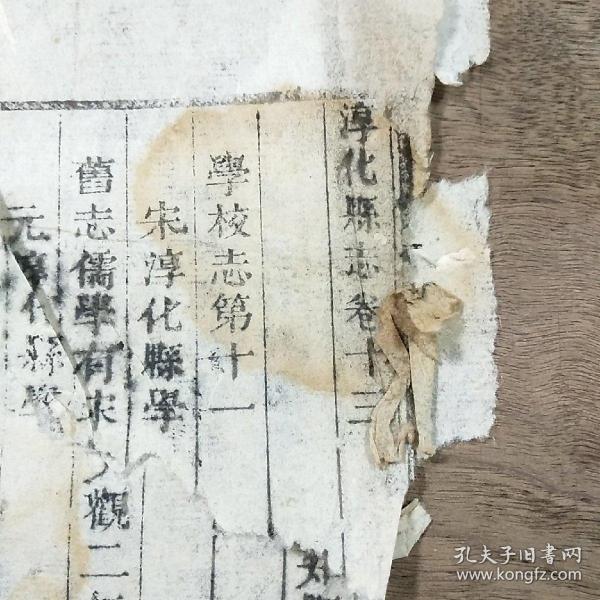 淳化縣志卷十三
學校志第十一
宋淳化縣學
舊志儒學有宋大觀二年
元淳化縣學
孔夫子旧書网
www.kongfz.com